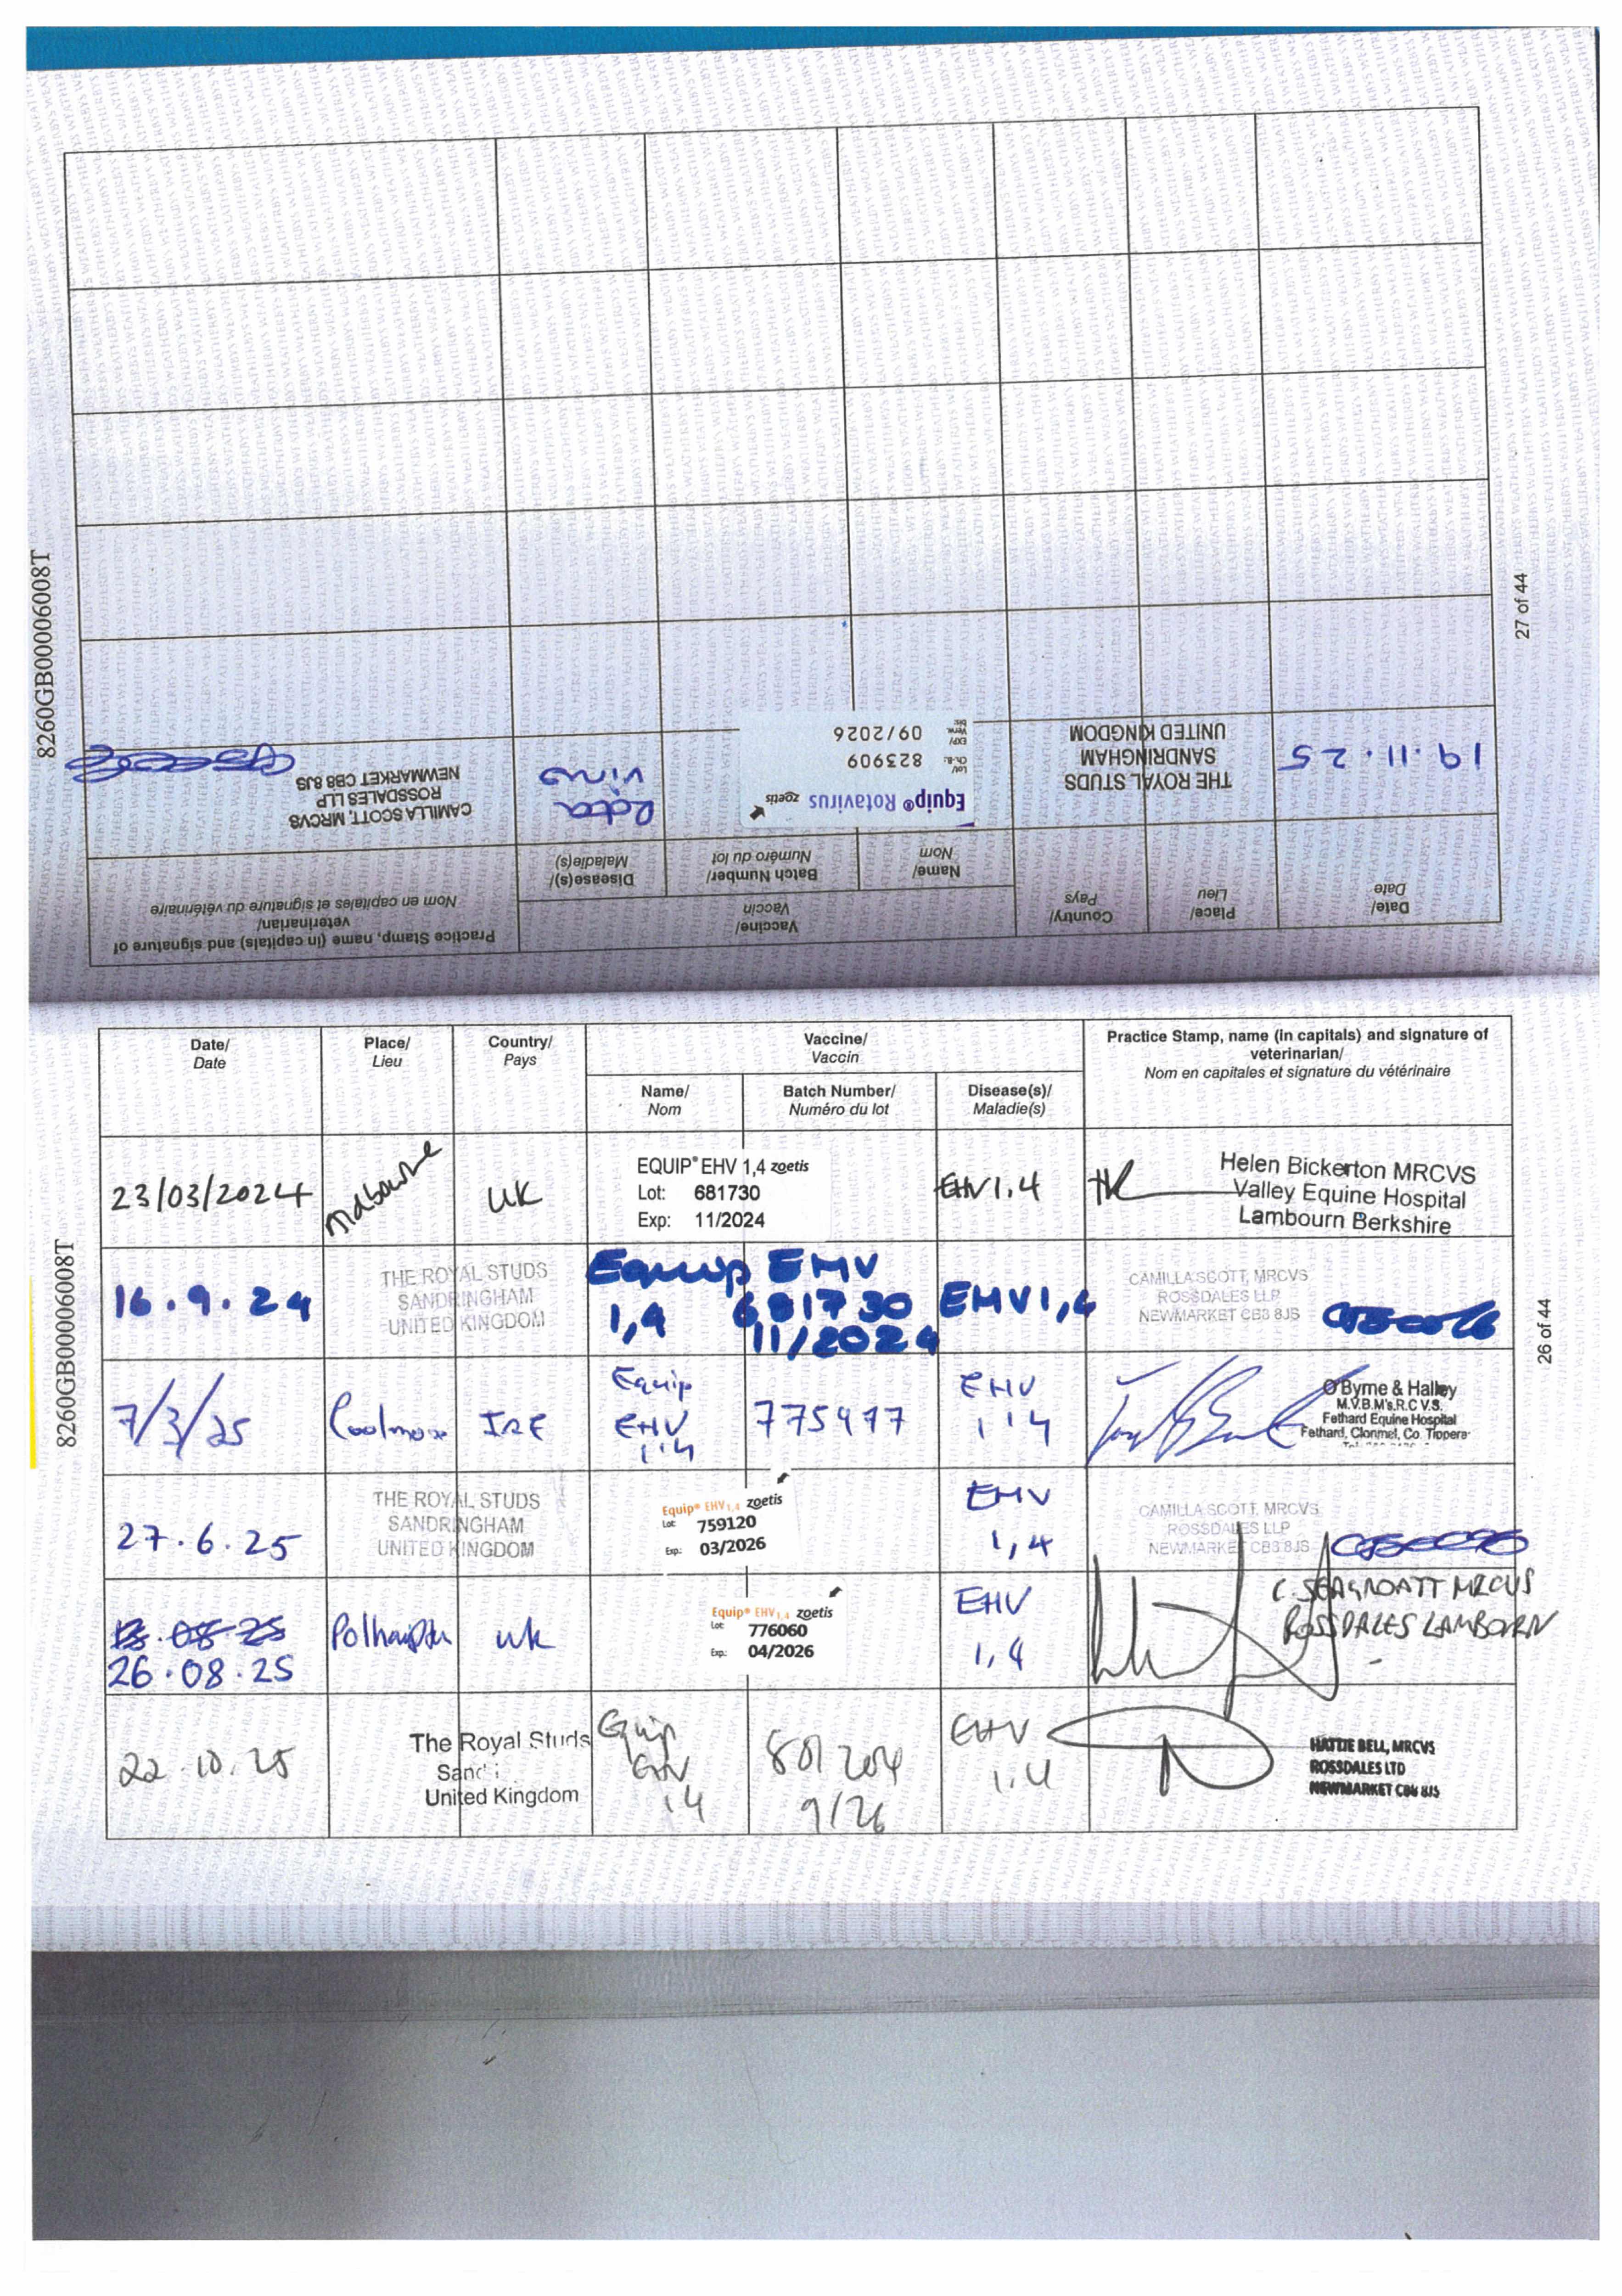 8260GB00006008T
27 of 44
Practice Stamp, name (in capitals) and signature of
veterinarian/
Nom en capitales et signature du vétérinaire
Vaccine/
Vaccin
Disease(s)/
Maladie(s)
Batch Number/
Numéro du lot
Name/
Nom
Country/
Pays
Place/
Lieu
Date/
Date
19.11.25
THE ROYAL STUDS
SANDRINGHAM
UNITED KINGDOM
Equip® Rotavirus zoetis
Lot/
Ch.-B.: 823909
EXP/
Verw.
bis: 09/2026
Rota
virus
CAMILLA SCOTT, MRCVS
ROSSDALES LLP
NEWMARKET CB8 8JS
8260GB00006008T
26 of 44
Date/
Date
Place/
Lieu
Country/
Pays
Vaccine/
Vaccin
Name/
Nom
Batch Number/
Numéro du lot
Disease(s)/
Maladie(s)
Practice Stamp, name (in capitals) and signature of
veterinarian/
Nom en capitales et signature du vétérinaire
23/03/2024
UK
EQUIP® EHV 1,4 zoetis
Lot: 681730
Exp: 11/2024
EHV 1,4
Helen Bickerton MRCVS
Valley Equine Hospital
Lambourn Berkshire
16.9.24
THE ROYAL STUDS
SANDRINGHAM
UNITED KINGDOM
Equip EHV
1,4 681730
11/2024
EHV1,4
CAMILLA SCOTT, MRCVS
ROSSDALES LLP
NEWMARKET CB8 8JS
7/3/25
Coolmore
IRE
Equip
EHV
1'4
775977
EHV
1'4
O'Byrne & Halley
M.V.B.M's.R.C.V.S.
Fethard Equine Hospital
Fethard, Clonmel, Co. Tippera
27.6.25
THE ROYAL STUDS
SANDRINGHAM
UNITED KINGDOM
Equip® EHV1,4 zoetis
Lot: 759120
Exp.: 03/2026
EHV
1,4
CAMILLA SCOTT, MRCVS
ROSSDALES LLP
NEWMARKET CB8 8JS
26.08.25
Polhampton
UK
Equip® EHV1,4 zoetis
Lot: 776060
Exp.: 04/2026
EHV
1,4
C. SEAGROATT MRCVS
ROSSDALES LAMBOURN
22.10.25
The Royal Studs
Sand
United Kingdom
Equip
EHV
1.4
801204
9/26
EHV
1.4
HATTIE BELL, MRCVS
ROSSDALES LTD
NEWMARKET CB8 8JS